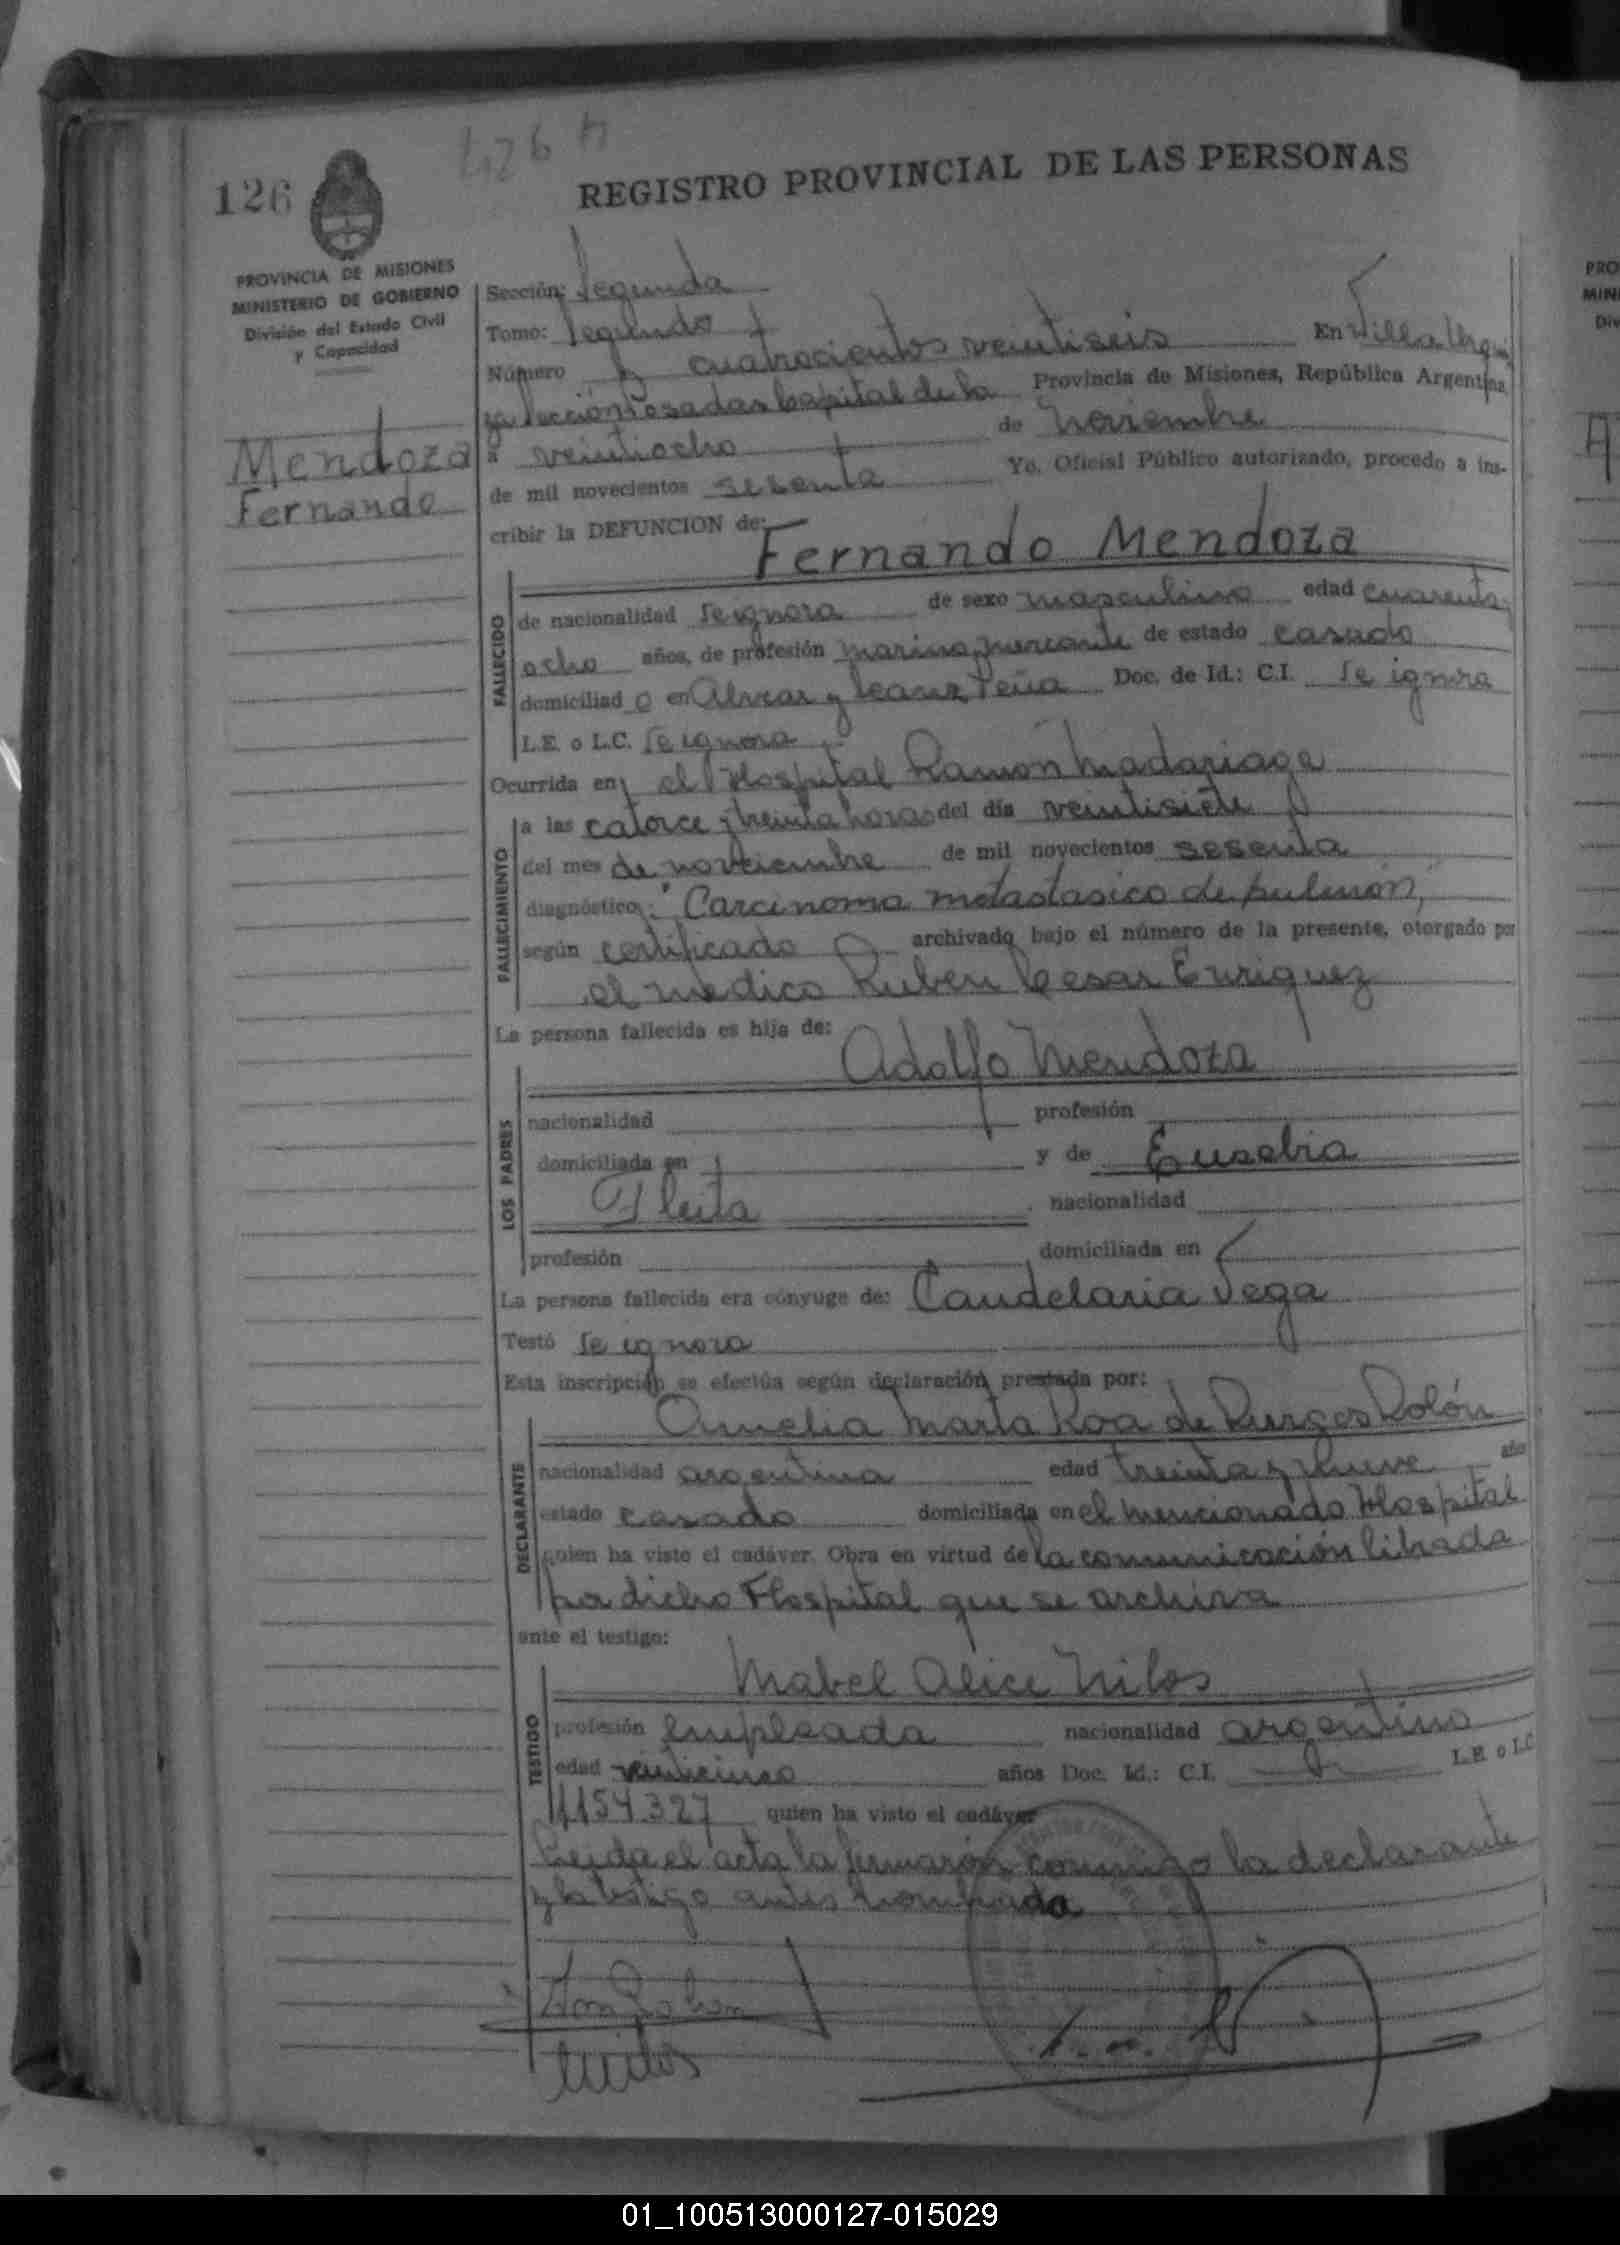 126
REGISTRO PROVINCIAL DE LAS PERSONAS
PROVINCIA DE MISIONES
MINISTERIO DE GOBIERNO
División del Estado Civil
y Capacidad
Mendoza
Fernando
Sección: Segunda
Tomo: Segundo
Número cuatrocientos veintiseis En Villa Urqui
za Sección Posadas Capital de la Provincia de Misiones, República Argentina,
a veintiocho de Noviembre
de mil novecientos sesenta Yo, Oficial Público autorizado, procedo a ins-
cribir la DEFUNCION de:
Fernando Mendoza
FALLECIDO
de nacionalidad Se ignora de sexo masculino edad cuarenta y
ocho años, de profesión marino mercante de estado casado
domiciliado en Alvear y Saenz Peña Doc. de Id.: C.I. Se ignora
L.E. o L.C. Se ignora
Ocurrida en el Hospital Ramón Madariaga
FALLECIMIENTO
a las catorce y treinta horas del día veintisiete
del mes de noveiembre de mil novecientos sesenta
diagnóstico: "Carcinoma metastasico de pulmón"
según certificado archivado bajo el número de la presente, otorgado por
el medico Ruben Cesar Enriquez
La persona fallecida es hija de:
Adolfo Mendoza
LOS PADRES
nacionalidad profesión
domiciliada en y de Eusebia
Fleita nacionalidad
profesión domiciliada en
La persona fallecida era cónyuge de: Candelaria Vega
Testó Se ignora
Esta inscripción se efectúa según declaración prestada por:
Amelia Marta Roa de Rolón
DECLARANTE
nacionalidad argentina edad treinta y nueve año
estado casado domiciliada en el mencionado Hospital
quien ha visto el cadáver. Obra en virtud de la comunicación librada
por dicho Hospital que se archiva
ante el testigo:
Mabel Alice Milos
TESTIGO
profesión empleada nacionalidad argentina
edad veinticinco años Doc. Id.: C.I. L.E. o L.C.
1154.327 quien ha visto el cadáver
Leida el acta la firmarón conmigo la declarante
y la testigo antes nombrada
01_100513000127-015029